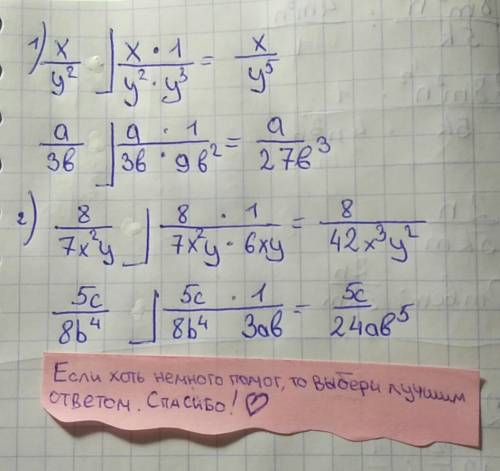 1) x/y² ⌋ x · 1/y² · y³ = x/y⁵
a/3b ⌋ a · 1/3b · 9b² = a/27b³
2) 8/7x²y ⌋ 8 · 1/7x²y · 6xy = 8/42x³y²
5c/8b⁴ ⌋ 5c · 1/8b⁴ 3ab = 5c/24ab⁵
Если хоть немного помог, то выбери лучшим
ответом. Спасибо! ♡